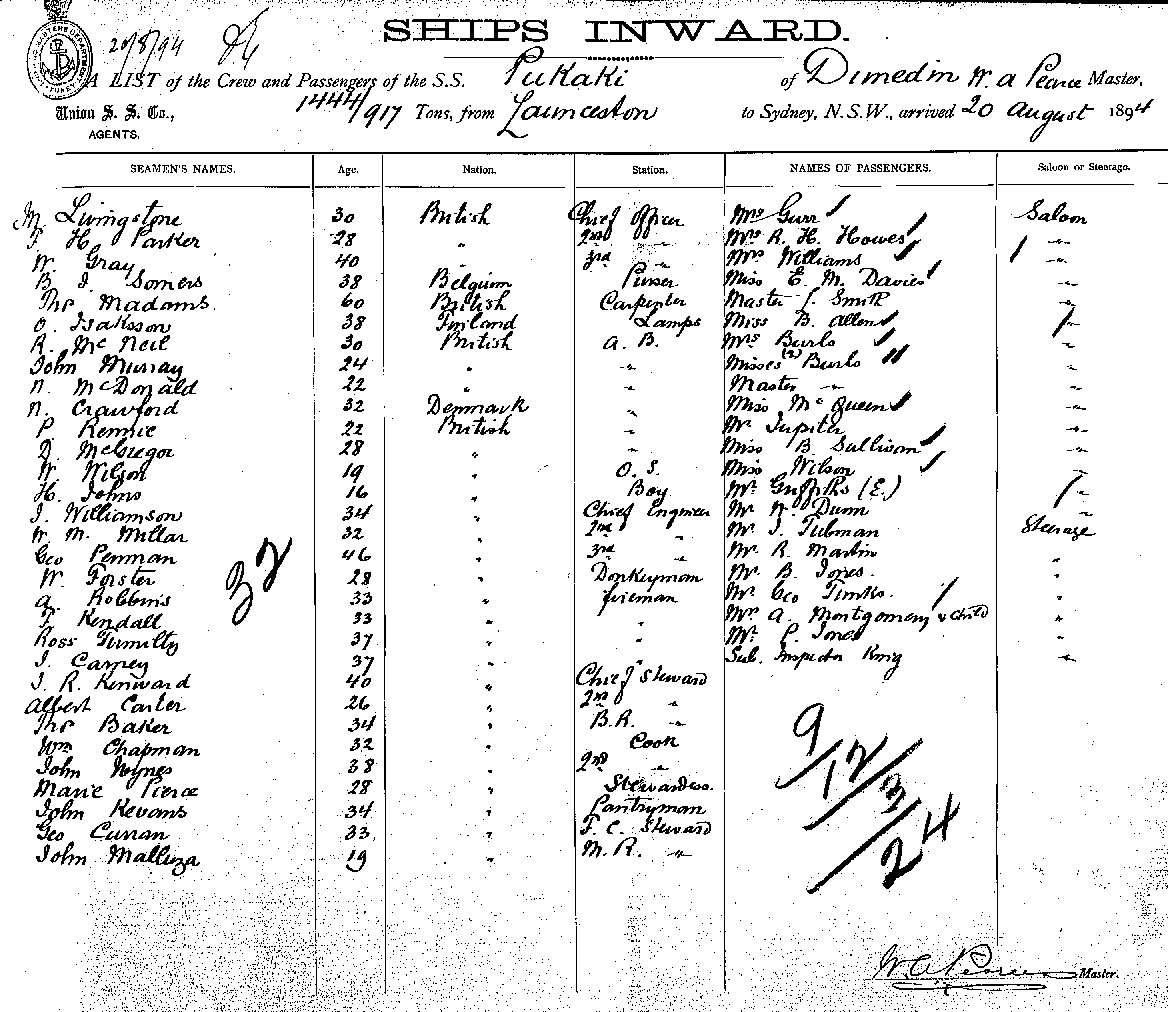 20/8/94
SHIPS INWARD.
A LIST of the Crew and Passengers of the S.S. Pukaki of Dunedin W. A Pearce Master,
Union S. S. Co., 1444/917 Tons, from Launceston to Sydney, N.S.W., arrived 20 August 1894
AGENTS.
SEAMEN'S NAMES. Age. Nation. Station. NAMES OF PASSENGERS. Saloon or Steerage.
M Livingstone 30 British Chief Officer Mrs Gurr Saloon
H Parker 28 " 2nd " Mrs R. H. Howes "
W. Gray 40 " 3rd " Mrs Williams "
B I Somers 38 Belgium Purser Miss E. M. Davies "
Thos Madams 60 British Carpenter Master J. Smith "
O. Isaksson 38 Finland Lamps Miss B. Allen "
R. McNeil 30 British A. B. Mrs Burls "
John Murray 24 " " Misses (2) Burls "
N. McDonald 22 " " Master " "
N. Crawford 32 Denmark " Miss McQueen "
P Rennie 22 British " Mr Jupiter "
D. McGregor 28 " " Miss B. Sullivan "
W Wilson 19 " O. S. Miss Wilson "
H. Johns 16 " Boy Mr Griffiths (E.) "
J. Williamson 34 " Chief Engineer Mr W. Dunn "
W. M. Millar 32 " 2nd " Mr J. Tubman Steerage
Geo Penman 46 " 3rd " Mr R. Martin "
W. Forster 28 " Donkeyman Mr B. Jones. "
A. Robbins 33 " fireman Mr Geo Timks. "
F Kendall 33 " " Mrs A. Montgomery & child "
Ross Gumilty 37 " " Mr P. Jones "
J. Carney 37 " " Sub. Inspector King "
J. R. Kenward 40 " Chief Steward
Albert Carter 26 " 2nd "
Thos Baker 34 " B.R. "
Wm Chapman 32 " Cook
John Wynes 38 " 2nd "
Marie Pierce 28 " Stewardess
John Kevans 34 " Pantryman
Geo Curran 33 " F. C. Steward
John Malluza 19 " M. R. "
32
9/12/3/24
W A Pearce Master.